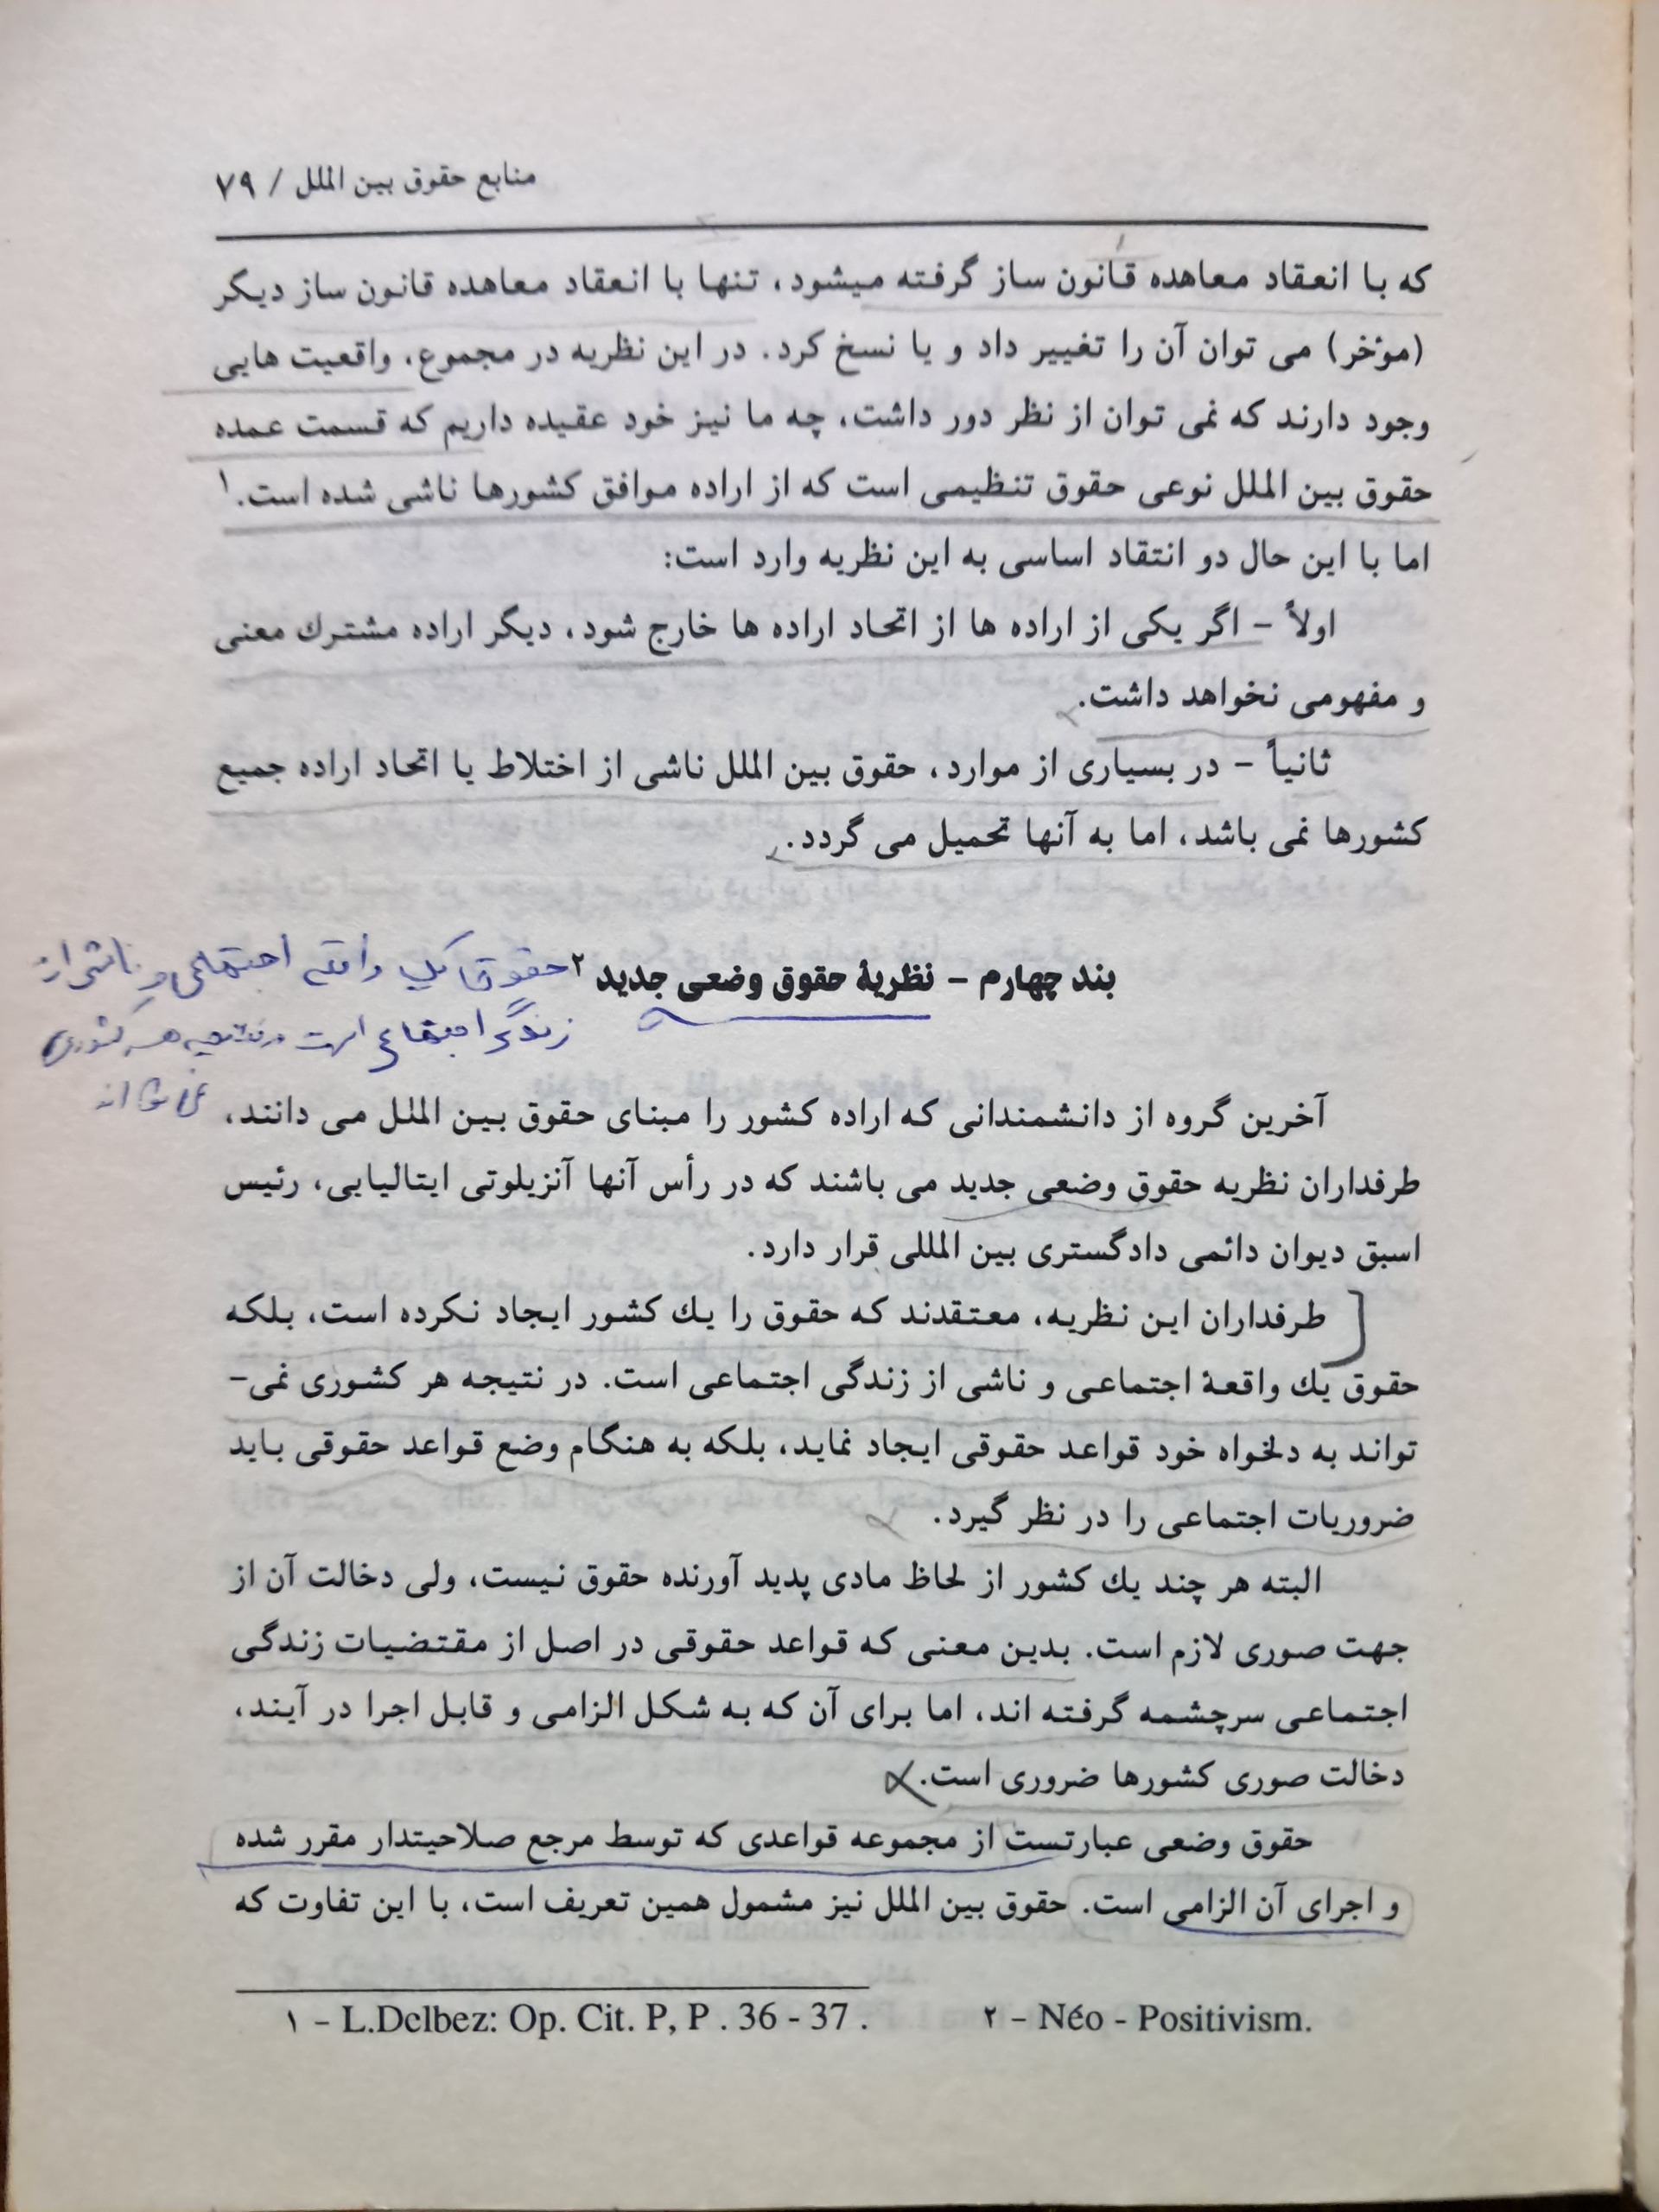 منابع حقوق بین الملل / ۷۹
که با انعقاد معاهده قانون ساز گرفته میشود، تنها با انعقاد معاهده قانون ساز دیگر
(مؤخر) می توان آن را تغییر داد و یا نسخ کرد. در این نظریه در مجموع، واقعیت هایی
وجود دارند که نمی توان از نظر دور داشت، چه ما نیز خود عقیده داریم که قسمت عمده
حقوق بین الملل نوعی حقوق تنظیمی است که از اراده موافق کشورها ناشی شده است.۱
اما با این حال دو انتقاد اساسی به این نظریه وارد است:
اولاً - اگر یکی از اراده ها از اتحاد اراده ها خارج شود، دیگر اراده مشترك معنی
و مفهومی نخواهد داشت.
ثانیاً - در بسیاری از موارد، حقوق بین الملل ناشی از اختلاط یا اتحاد اراده جمیع
کشورها نمی باشد، اما به آنها تحمیل می گردد.
بند چهارم - نظریۀ حقوق وضعی جدید ۲
حقوق یک واقعه اجتماعی و ناشی از
زندگی اجتماعی است در نتیجه هر کشوری
نمی تواند
آخرین گروه از دانشمندانی که اراده کشور را مبنای حقوق بین الملل می دانند،
طرفداران نظریه حقوق وضعی جدید می باشند که در رأس آنها آنزیلوتی ایتالیایی، رئیس
اسبق دیوان دائمی دادگستری بین المللی قرار دارد.
طرفداران این نظریه، معتقدند که حقوق را یك کشور ایجاد نکرده است، بلکه
حقوق یك واقعۀ اجتماعی و ناشی از زندگی اجتماعی است. در نتیجه هر کشوری نمی-
تواند به دلخواه خود قواعد حقوقی ایجاد نماید، بلکه به هنگام وضع قواعد حقوقی باید
ضروریات اجتماعی را در نظر گیرد.
البته هر چند یك کشور از لحاظ مادی پدید آورنده حقوق نیست، ولی دخالت آن از
جهت صوری لازم است. بدین معنی که قواعد حقوقی در اصل از مقتضیات زندگی
اجتماعی سرچشمه گرفته اند، اما برای آن که به شکل الزامی و قابل اجرا در آیند،
دخالت صوری کشورها ضروری است.
حقوق وضعی عبارتست از مجموعه قواعدی که توسط مرجع صلاحیتدار مقرر شده
و اجرای آن الزامی است. حقوق بین الملل نیز مشمول همین تعریف است، با این تفاوت که
۱ - L.Delbez: Op. Cit. P, P . 36 - 37 .
۲ - Néo - Positivism.